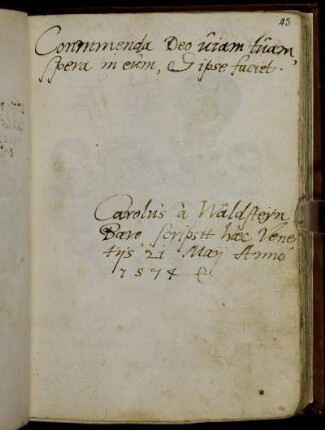 43
Commenda Deo uiam tuam,
spera in eum, & ipse faciet.
Carolus à Waldsteyn
Baro scripsit hæc Vene-
tijs 21 May Anno
1574